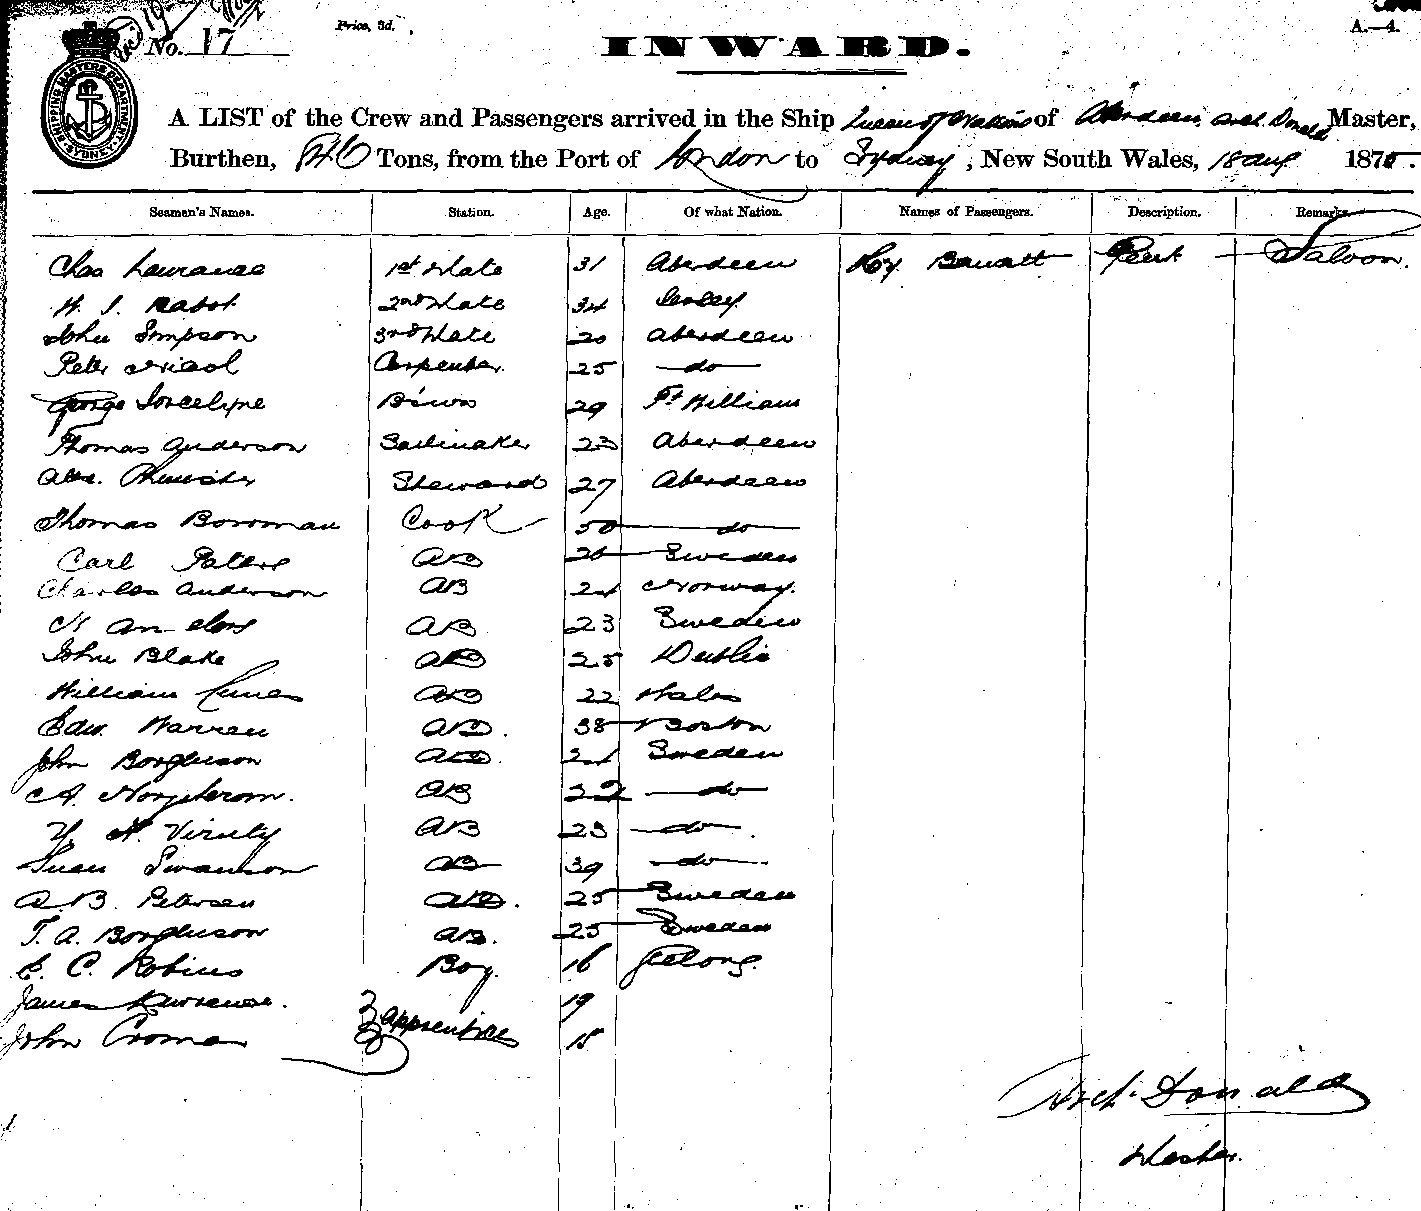 No. 17
Price, 3d.
A.—4.
INWARD.
SHIPPING MASTERS DEPARTMENT SYDNEY
A LIST of the Crew and Passengers arrived in the Ship Queen of Nations of Aberdeen, Arch. Donald Master,
Burthen, Tons, from the Port of London to Sydney, New South Wales, 18 Aug 1875.
Seamen's Names. Station. Age. Of what Nation. Names of Passengers. Description. Remarks.
Chas Lawrance 1st Mate 31 Aberdeen Hy Barratt Gent Saloon.
2nd Mate 34
John Simpson 3rd Mate 20 Aberdeen
Peter Nicol Carpenter. 25 do
George Joscelyne 29 Ft William
Thomas Anderson Sailmaker 23 Aberdeen
Steward 27 Aberdeen
Thomas Bowman Cook 50 do
Carl Peters AB Sweden
Charles Anderson AB 21 Norway.
AB 23 Sweden
John Blake AB 25 Dublin
William AB 22 Wales
Edw. Warren AB. 38 Boston
John AB. 21 Sweden
A. AB 22 do
AB 23 do.
Swanson AB 39 do.
A. B. Petersen AB. 25 Sweden
T. A. AB. 25 Sweden
E. C. Robins Boy. 16 Geelong.
James Lawrence. 19
John Apprentices 15
Arch. Donald
Master.